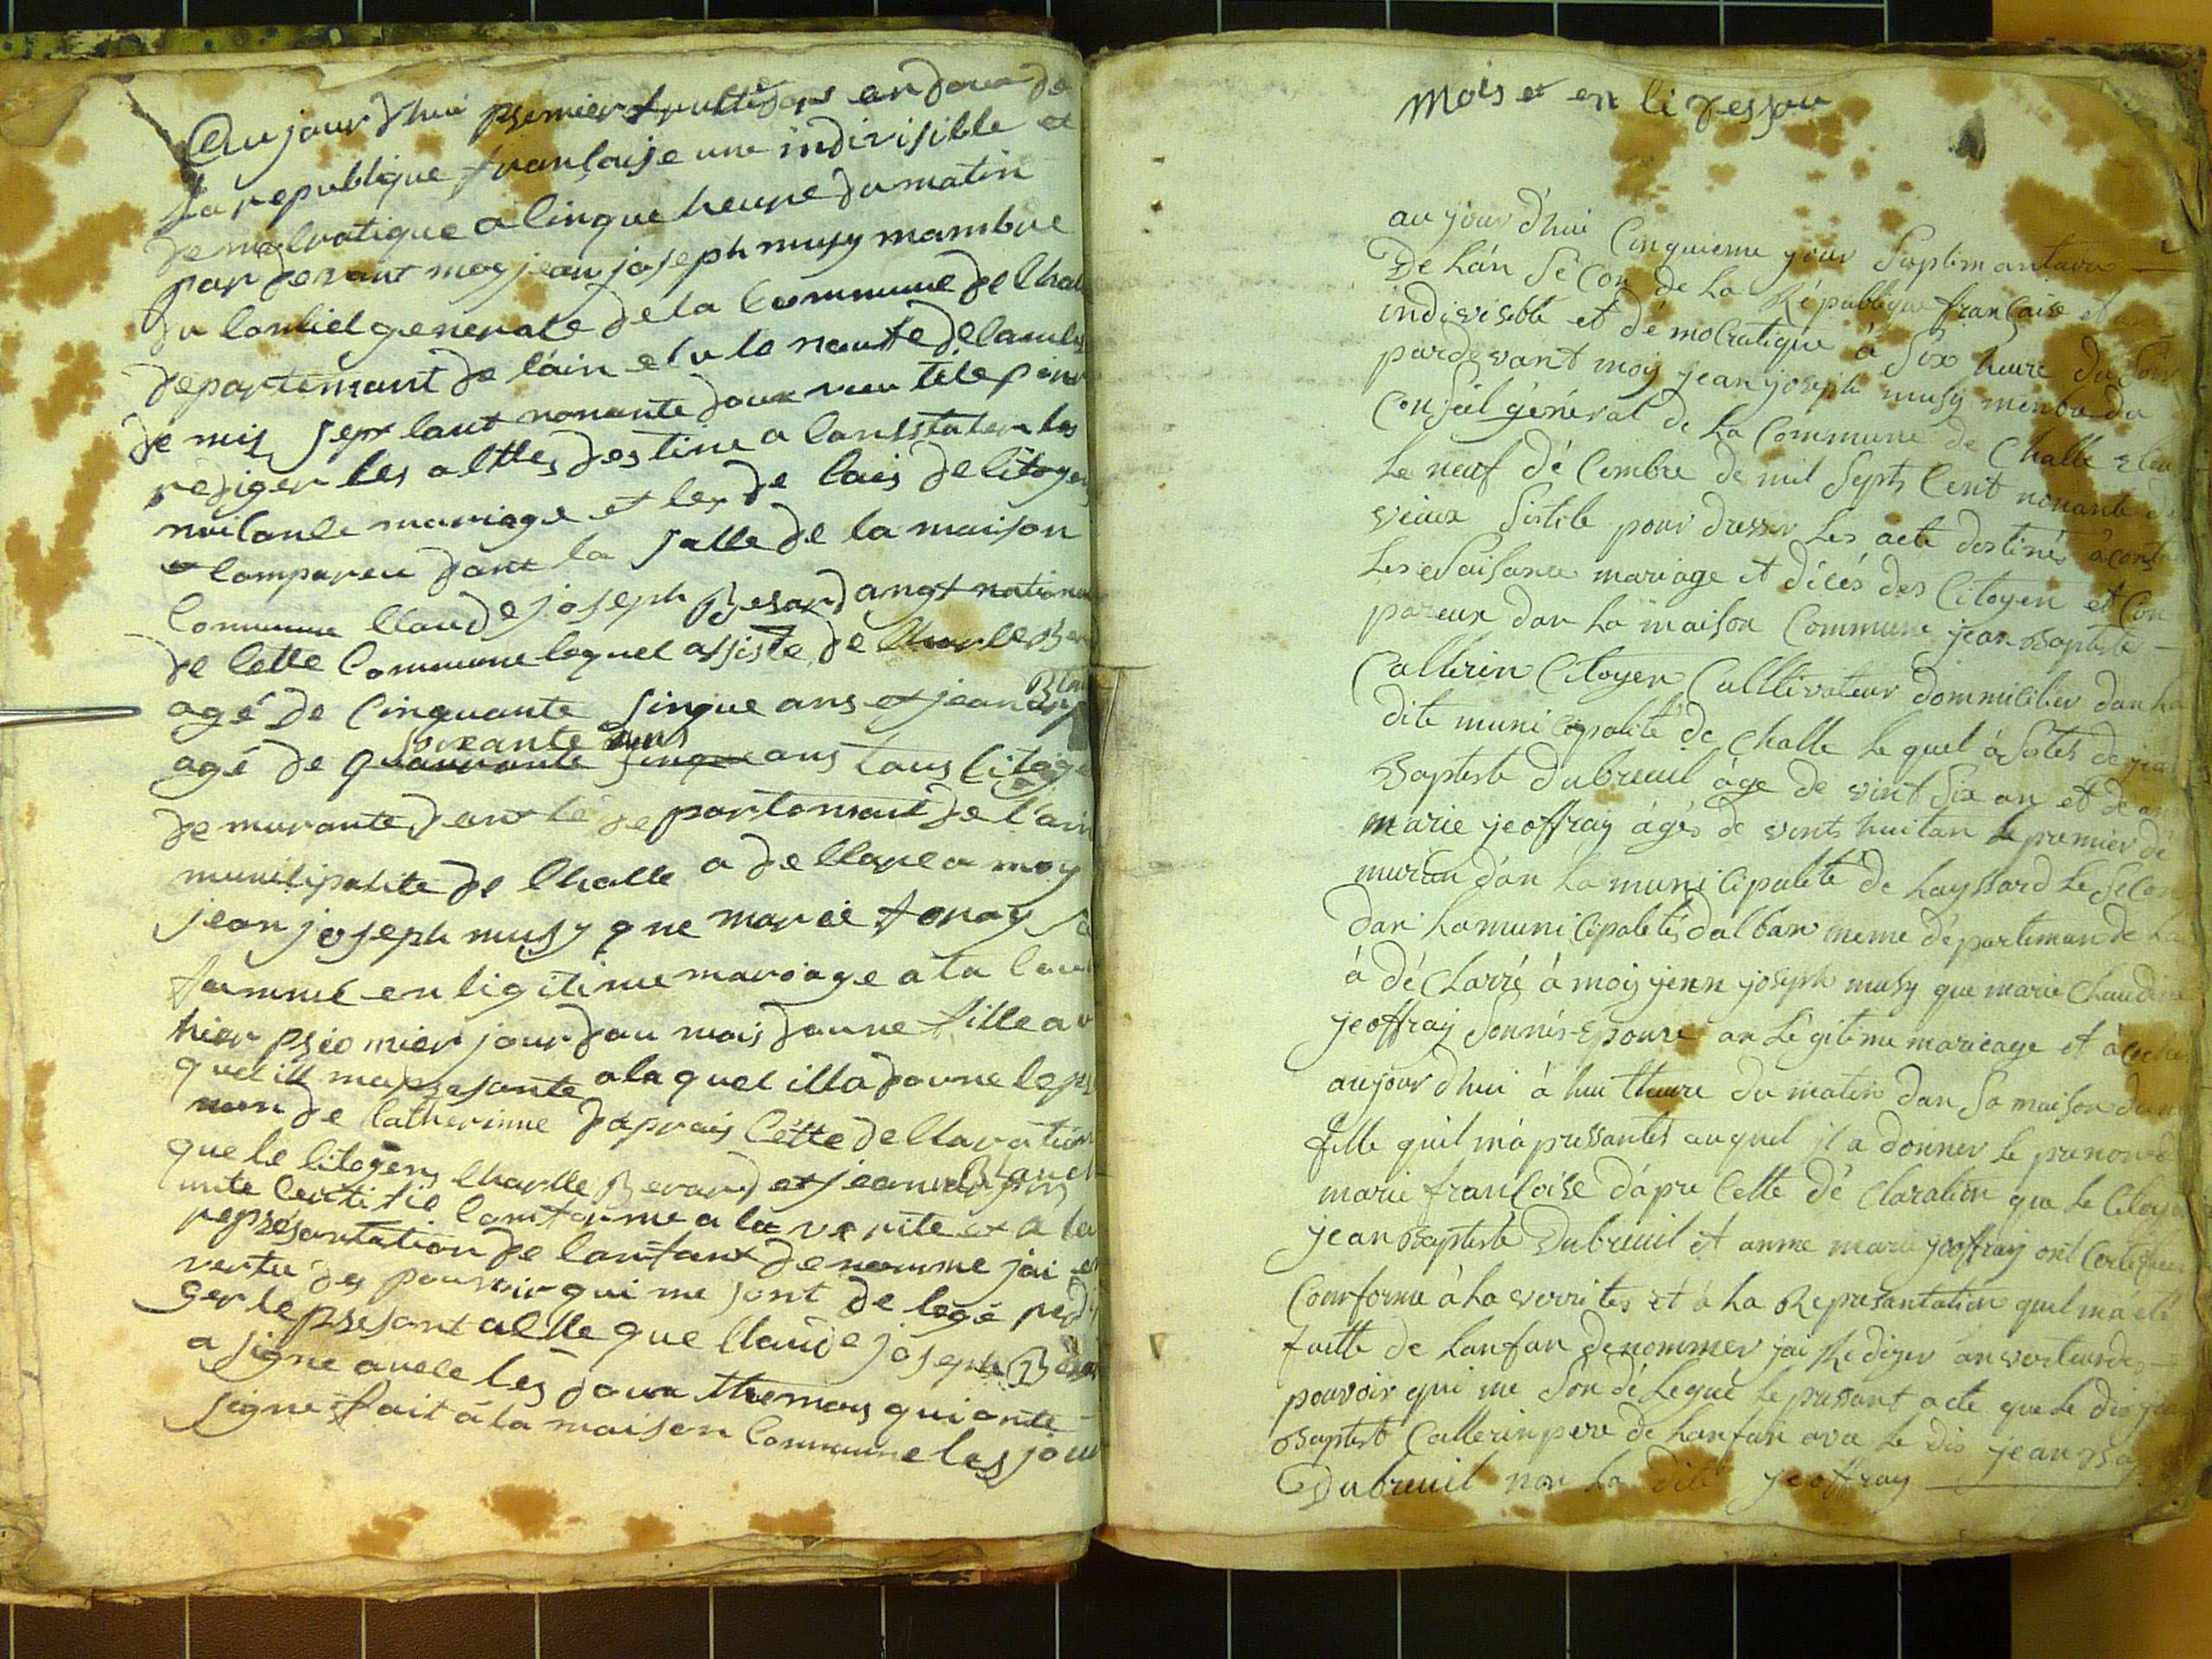 Aujour dhui premier frultidors an doua de
La republique franlaise une indivisible et
demolratique a linque heure du matin
par devant moy jean joseph musy mambre
du lonliel generale de la Commune de lhal
departemant de l'ain elu le neufe de
de mis sept lant nonante doux
rediger les altes destine a lonstater les
mariage et les de lais de litoyen
et lompareu dans la salle de la maison
Commune llaude joseph Berard
de lette Commune lequel assiste de lharle Ber
agé de Cinquante sinque ans et jean
Blan
soixante ans
agé de quarante sinque ans tous litoye
demurante dant le departemant de l'ain
munilipalite de lhalle a dellare a moy
jean joseph musy que marie fonay sa
famme en ligitime mariage a la
hier premier jour dau mois daune fille a
quel ill ma presante a la quel illa donne le p
non de latherinne daprais lette dellaration
que le litoyens lharlle Berard et jean Blanc
unte lertifie lomforme a la verite et a la
representation de lanfant denomme jai en
vertu des pouvoir qui me sont de legé redi
ger le presant allte que llaude joseph Berar
a signe avele les doux themons qui onte
signe fait a la maison Commune les jour
mois et en li dessou
au jour d'hui Cinquieme jour
De L'an Se Con de La République française et une
indivisible et démolratique à Six heure du Soir
pardevant moy jean joseph musy menbre du
Conseil général de La Commune de Challe eleu
Le neuf dé Cembre de mil Septs Cent nonante d
vieux Sistile pour dresser Les acte destinés à const
Les Naisance mariage et décés des Citoyen et Con
pareux dan La maison Commune jean Baptiste
Callerin Citoyen Cultivateur dommicilier dan La
dite municipalité de Challe Le quel à Sistés de jea
Baptiste Dubreuil âge de vint Six an et de an
marie jeoffray âgés de vints huit an Le premier de
muran dan La municipalité de Layssard Le Secon
dan La municipalités dalban meme départeman de La
à dé Clarré à moy jean joseph musy que marie Claudine
jeoffray Sonnés Epouse an Légitime marieage et à
aujour dhui à huit heure du matin dan Sa maison dune
fille quil m'a pressantés auquel il a donner Le prenom d
marie franCoise d'apre Cette dé Claration que Le Citoyen
jean Baptiste Dubreuil et anne marie jeoffray ont Certifier
Conforme à La verrités et à La Representation quil m'a eté
faitte de Lanfan denommer jai Rediger an verteu des
pouvoir qui me Son dé Legué Le pressant acte que Le dis jean
Baptist Callerin pere de Lanfan avec Le dis jean Bap
Dubreuil non La dite jeoffray